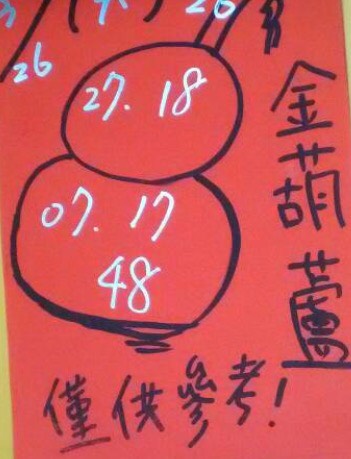 26
27. 18
07. 17
48
金葫蘆
僅供參考!